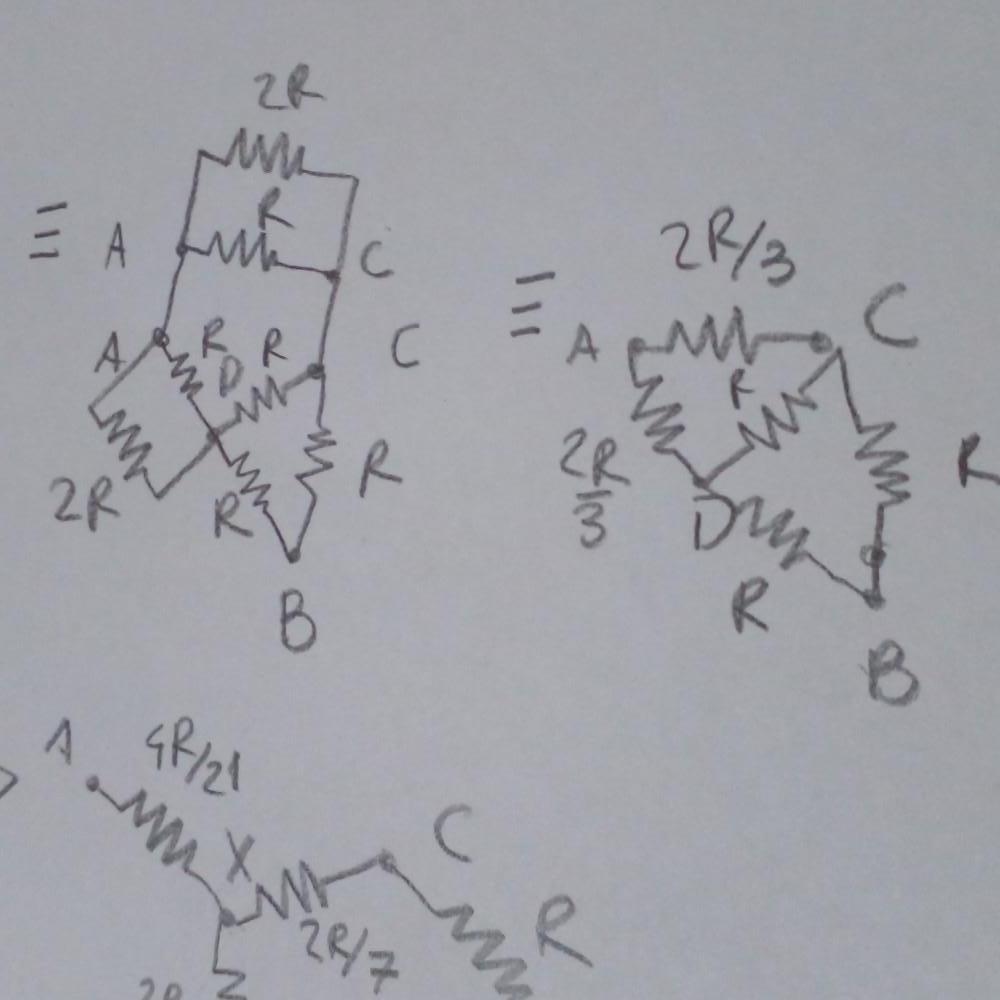 2R
R
≡ A C
A R D R C
2R R R
B
≡ A 2R/3 C
R
2R/3 D R
R
B
A 4R/21
X C
2R/7 R
2R